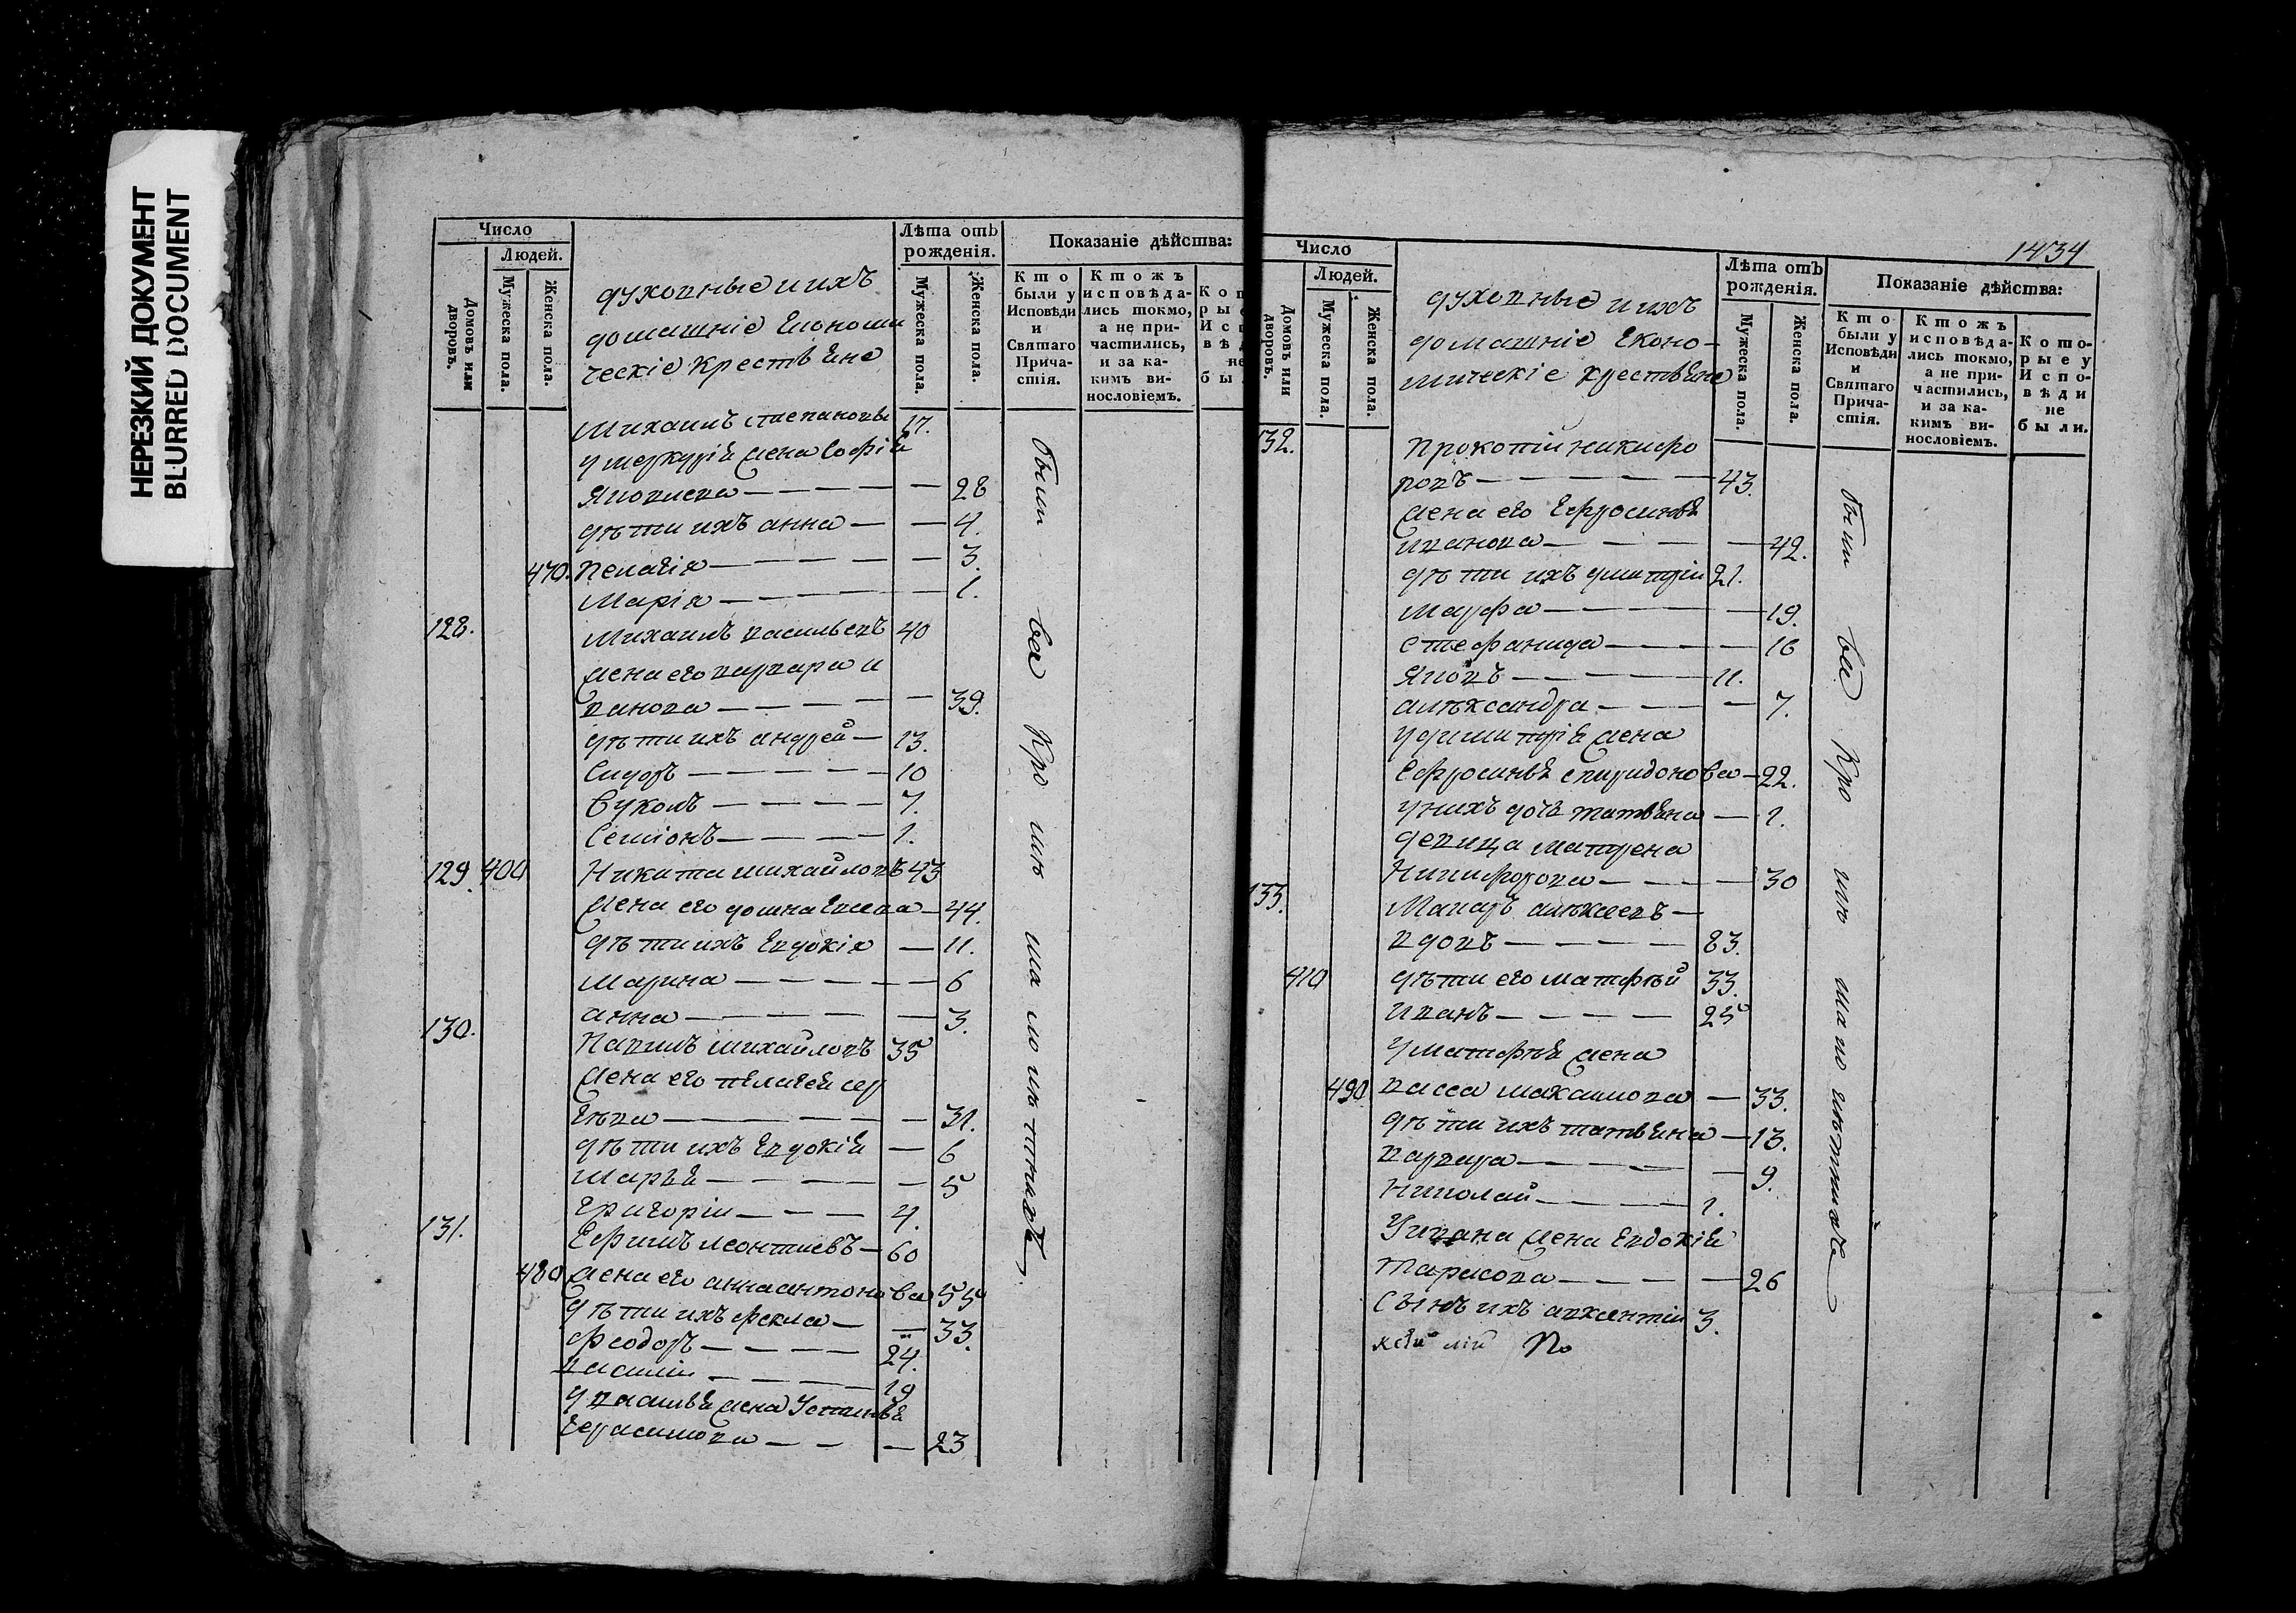 НЕРЕЗКИЙ ДОКУМЕНТ
BLURRED DOCUMENT
Число
Людей.
Домовъ или дворовъ.
Мужеска пола.
Женска пола.
духовные и ихъ
домашніе Економи
ческіе Крестьяне
Лѣта отъ рожденія.
Мужеска пола.
Женска пола.
Показаніе дѣйства:
Кто были у Исповѣди и Святаго Прича-стія.
Ктожъ исповѣда-лись токмо, а не при-частились, и за ка-кимъ ви-нословіемъ.
Михаилъ степановъ 17.
у меркурія жена Софія
Яковлева — — — — — 28
дѣти ихъ анна — — 4.
470. Пелагія — — — — — 3.
Марія — — — — — 1.
128. Михаилъ васильевъ 40
жена его варвара и
ванова — — — — — 39.
дѣти ихъ андрей — 13.
Сидоръ — — — — — 10
Вуколъ — — — — 7.
Семіонъ — — — — 1.
129. 400 Никита михайловъ 43
жена его домна Евсева — 44.
дѣти ихъ Евдокія — 11.
марина — — — — — 6
анна — — — — — 3.
130. Павилъ михайловъ 35
жена его пелагея сер
гѣва — — — — — 31.
дѣти ихъ Евдокія — 6
Марья — — — — — 5
Григоріи — — — 4.
131. Ефимъ леонтиевъ — 60
480 жена его анна антонова 55
дѣти ихъ фекла — — 33.
Феодоръ — — — — 24.
василіи — — — — 19
у василья жена Устинья
Герасимова — — — 23
были
вси
Кро
мѣ
ма
ло
лѣтныхъ
1434
Число
Людей.
Домовъ или дворовъ.
Мужеска пола.
Женска пола.
духовные и ихъ
домашніе Еконо-
мическіе крестьяне
Лѣта отъ рожденія.
Мужеска пола.
Женска пола.
Показаніе дѣйства:
Кто были у Исповѣди и Святаго Прича-стія.
Ктожъ исповѣда-лись токмо, а не при-частились, и за ка-кимъ ви-нословіемъ.
Кото-рые у Испо-вѣди не были.
132. Прокопіи никифо
ровъ — — — — — 43.
жена его Ефросинья
иванова — — — — — 42.
дѣти ихъ дмитріи 21.
Марфа — — — — — 19.
стефанида — — — — 16
Яковъ — — — — — 11.
алѣксандра — — — — 7.
у димитрія жена
Ефросинья спиридонова — 22.
у нихъ дочь татьяна — 1.
девица матрена
Никифорова — — — — 30
133. Макаръ алѣксеевъ —
вдовъ — — — — 83.
410 дѣти его матфѣй 33.
иванъ — — — — 25
у матфѣя жена
490 васса максимова — 33.
дѣти ихъ татьяна — 13.
варвара — — — — — 9.
Николай — — — — 1.
У ивана жена Евдокія
тарасова — — — — 26
сынъ ихъ авксентіи 3.
были
вси
Кро
мѣ
ма
ло
лѣтныхъ